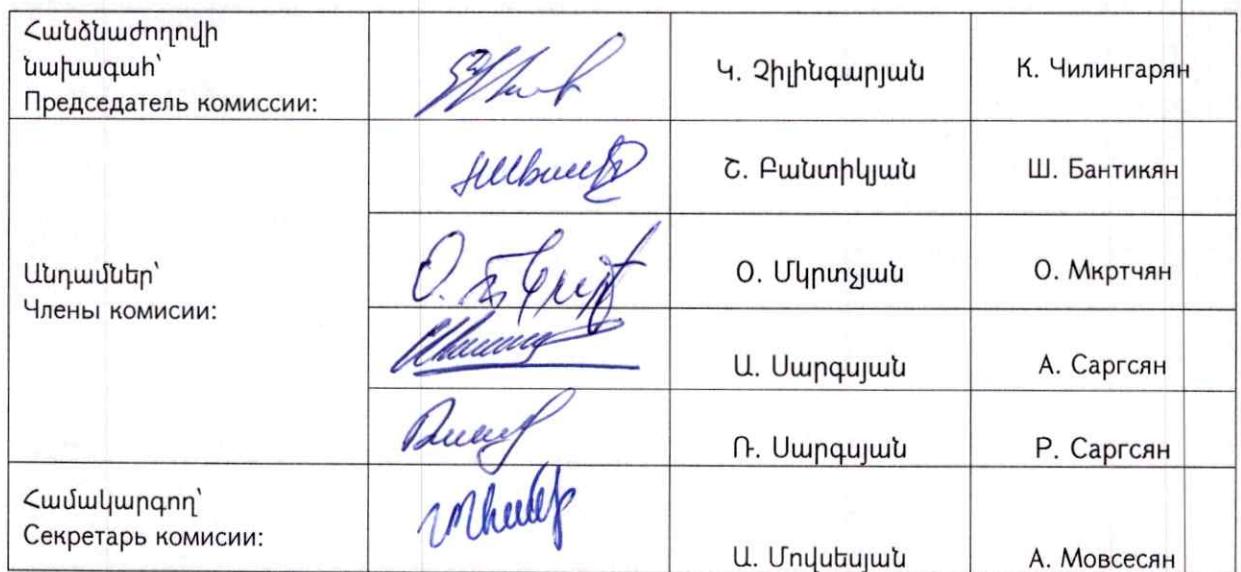 Հանձնաժողովի
նախագահ՝
Председатель комиссии:
Կ. Չիլինգարյան
К. Чилингарян
Շ. Բանտիկյան
Ш. Бантикян
Անդամներ՝
Члены комисии:
Օ. Մկրտչյան
О. Мкртчян
Ա. Սարգսյան
А. Саргсян
Ռ. Սարգսյան
Р. Саргсян
Համակարգող՝
Секретарь комисии:
Ա. Մովսեսյան
А. Мовсесян